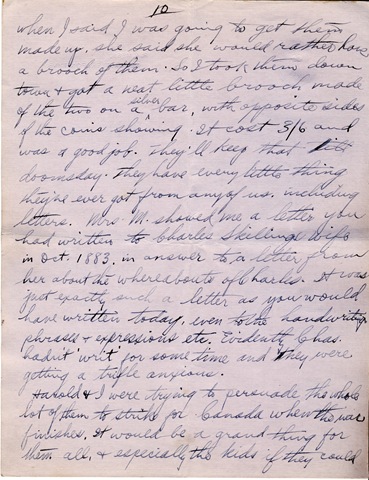 10
when I said I was going to get them
made up, she said she would rather have
a brooch of them. So I took them down
town & got a neat little brooch made
of the two on a silver bar, with opposite sides
of the coins showing. It cost 3/6 and
was a good job. They'll keep that till
doomsday. They have every little thing
they've ever got from any of us, including
letters. Mrs M. showed me a letter you
had written to Charles Skillings wife
in Oct. 1883, in answer to a letter from
her about the whereabouts of Charles. It was
just exactly such a letter as you would
have written today, even to the handwriting
phrases & expressions etc. Evidently Chas.
hadn't writ for some time and they were
getting a trifle anxious.
Harold & I were trying to persuade the whole
lot of them to strike for Canada when the war
finishes. It would be a grand thing for
them all, & especially the kids if they could